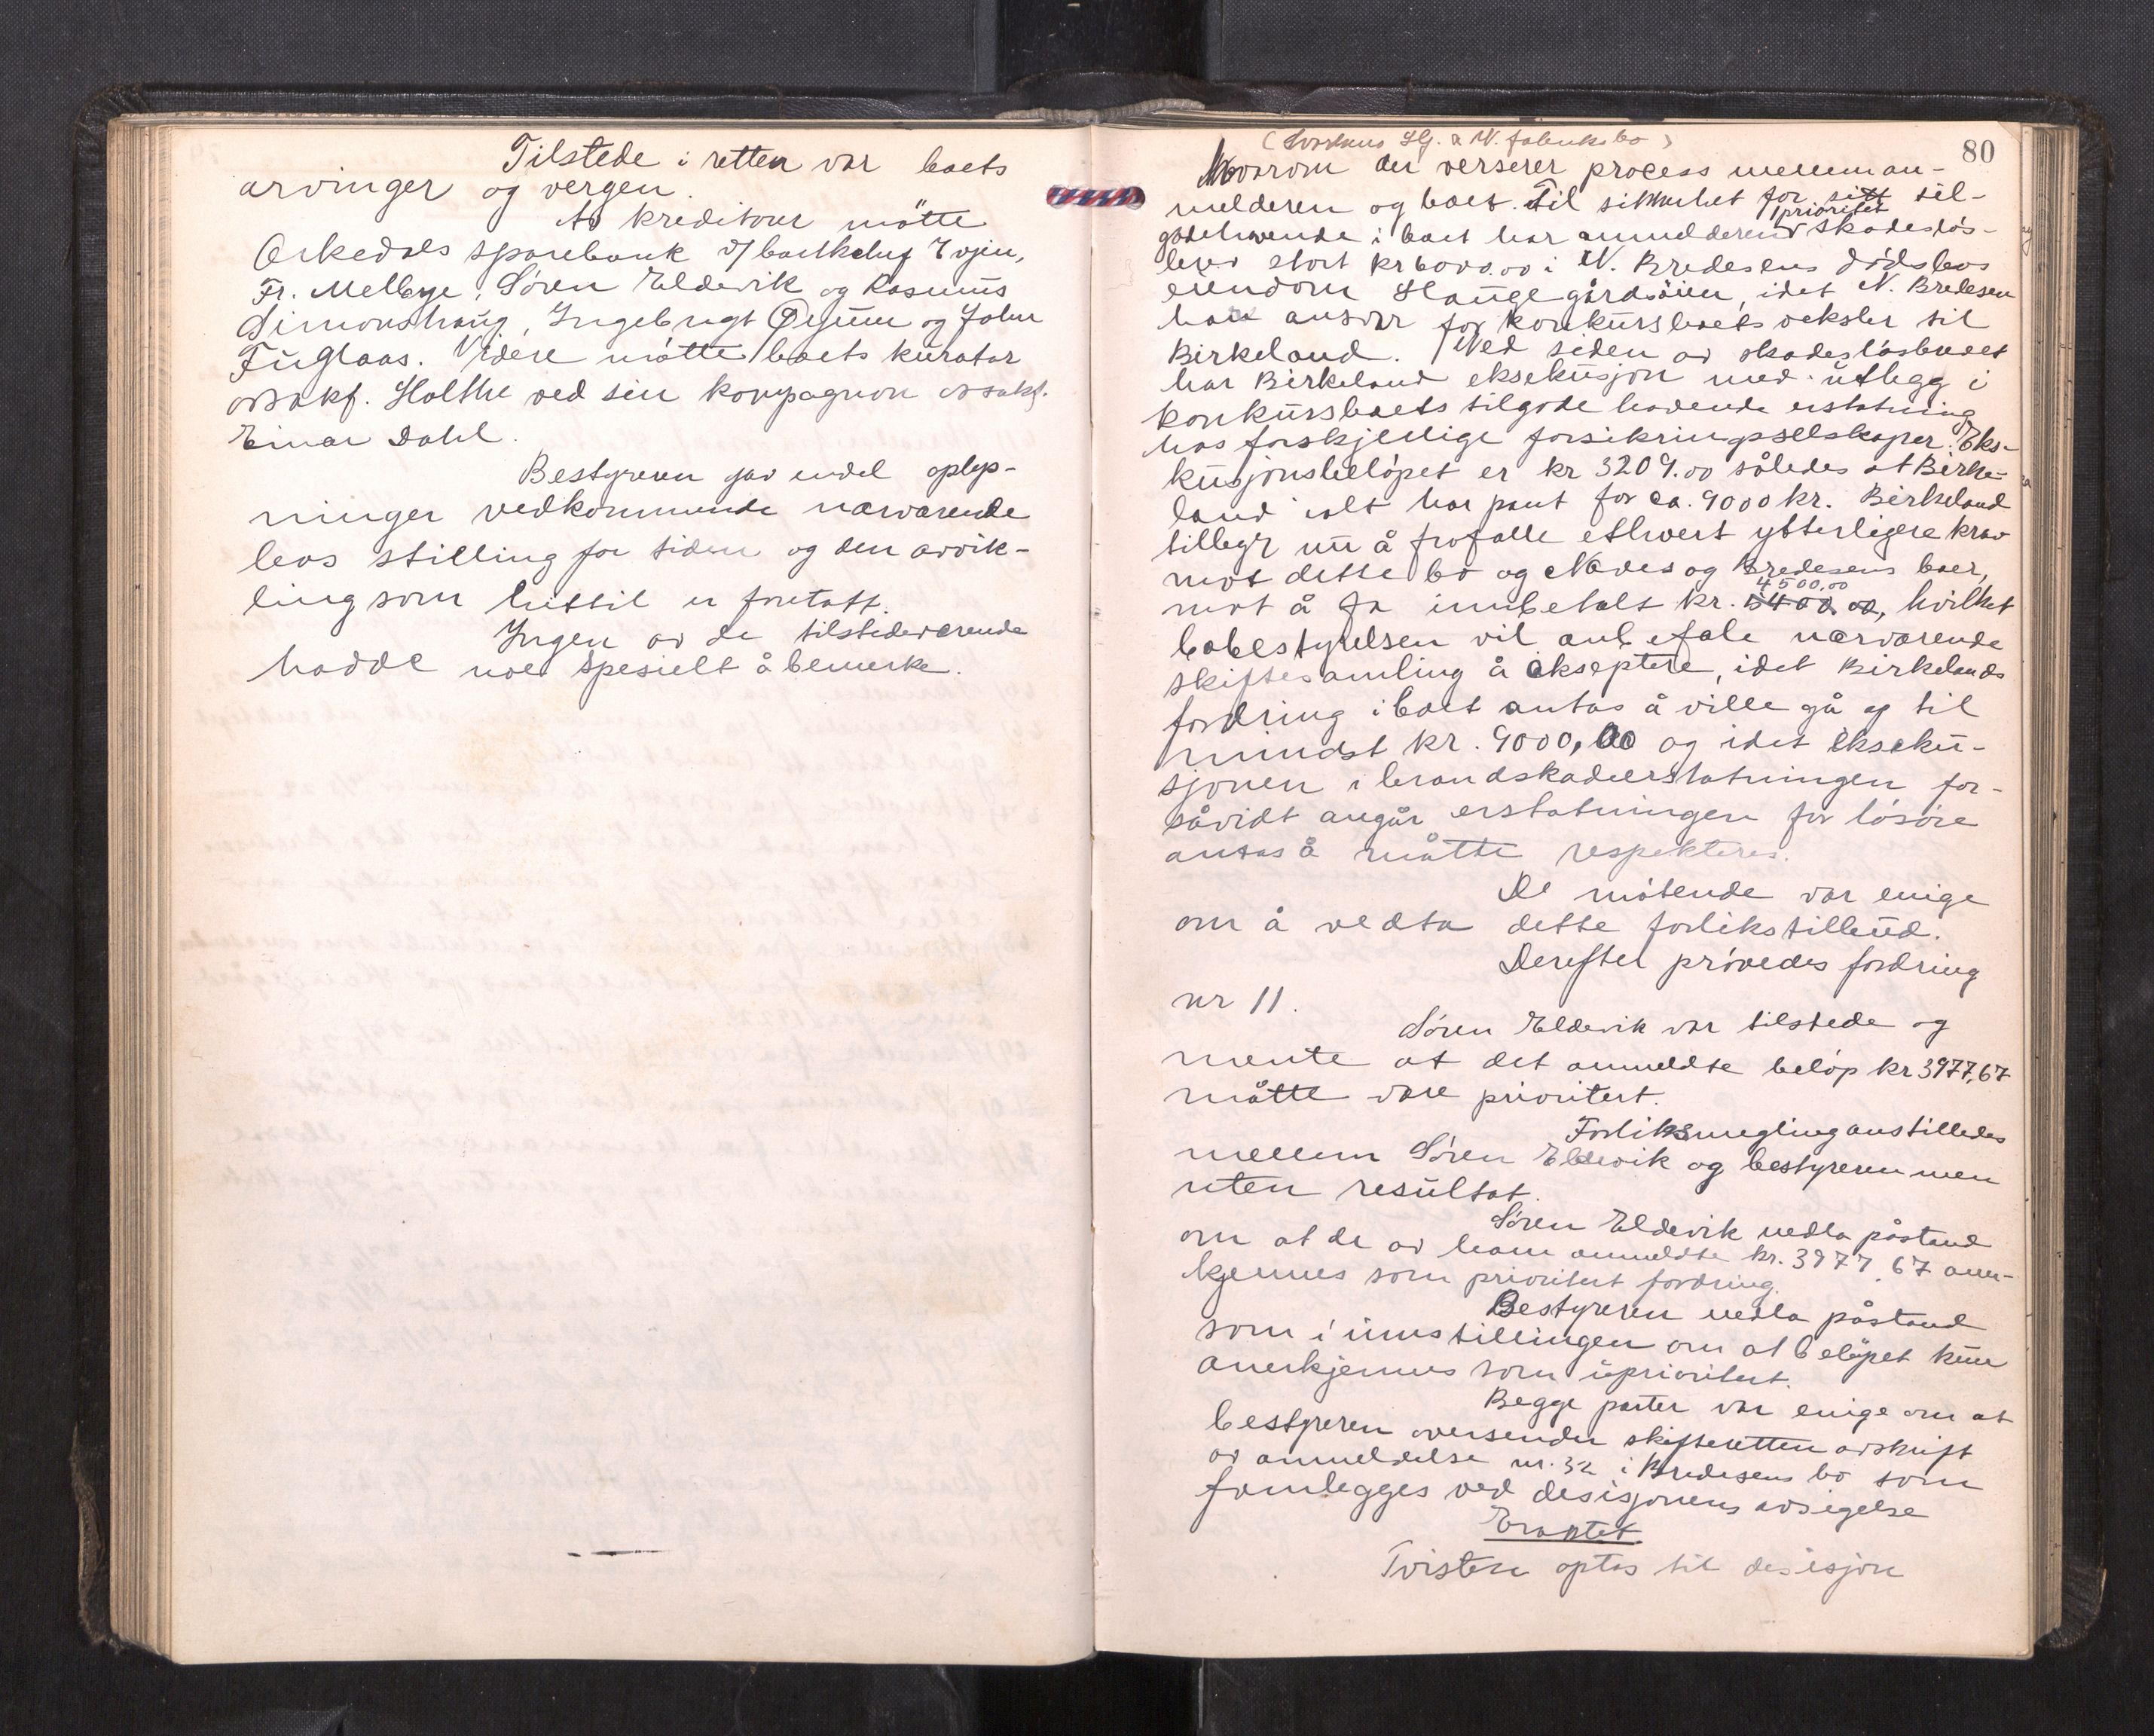 Tilstede i retten var boets
arvinger og vergen.
Av kreditorer mötte
Orkedals sparebank v/ bankchef Evjen,
Fr. Melbye, Sören Eldevik og Rasmus
Simonshaug, Ingebrigt Öyum og John
Fuglaas. Videre mötte boets kurator
o.r.sakf. Holthe ved sin kompagnon o.r.sakf.
Einar Dahl.
Bestyreren gav endel oplys-
ninger vedkommende nærværende
bos stilling for tiden og den avvik-
ling som hittil er foretatt.
Ingen av de tilstedeværende
hadde noe spesielt å bemerke.
80
hvorom der verserer process mellem an-
melderen og boet. Til sikkerhet for sitt til-
prioritet
godehavende i boet har anmelderen skadeslös-
brev stort kr 6000.00 i N. Bredesens dödsbos
eiendom Haugegårdsöien, idet N. Bredesen
har ansvar for konkursboets veksler til
Birkeland. Ved siden av skadeslösbrevet
har Birkeland eksekusjon med utlegg i
konkursboets tilgode havende erstatning
hos forskjellige forsikringsselskaper. Ekse-
kusjonsbelöpet er kr 3209.00 således at Birke-
land ialt har pant for ca. 9000 kr. Birkeland
tilbyr nu å frafalle ethvert ytterligere krav
mot dette bo og Bredesens boer,
4500,00
mot å få innbetalt kr. 5400.00, hvilket
bobestyrelsen vil anbefale nærværende
skiftesamling å akseptere, idet Birkelands
fordring i boet antas å ville gå op til
mindst kr. 9000,00 og idet ekseku-
sjonen i brandskadeerstatningen for-
såvidt angår erstatningen for lösöre
antas å måtte respekteres.
De mötende var enige
om å vedta dette forlikstilbud.
Derefter prövedes fordring
nr 11.
Sören Eldevik var tilstede og
mente at det anmeldte belöp kr 3977,67
måtte være prioritert.
Forliksmegling anstilledes
mellem Sören Eldevik og bestyreren men
uten resultat.
Sören Eldevik nedla påstand
om at de av ham anmeldte kr. 3977,67 aner-
kjennes som prioritert fordring.
Bestyreren nedla påstand
som i innstillingen om at belöpet kun
anerkjennes som uprioritert.
Begge parter var enige om at
bestyreren oversender skifteretten avskrift
av anmeldelse nr. 32 i Bredesens bo som
femlegges ved desisjonens avsigelse
Eraktet
Tvisten optas til desisjon